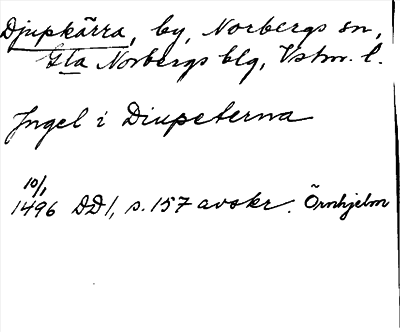 Djupkärra, by, Norbergs sn,
Gla Norbergs blg, Vstm. l.
Ingel i Diupeterna
10/1
1496 DD1, s. 157 avskr. Örnhjelm